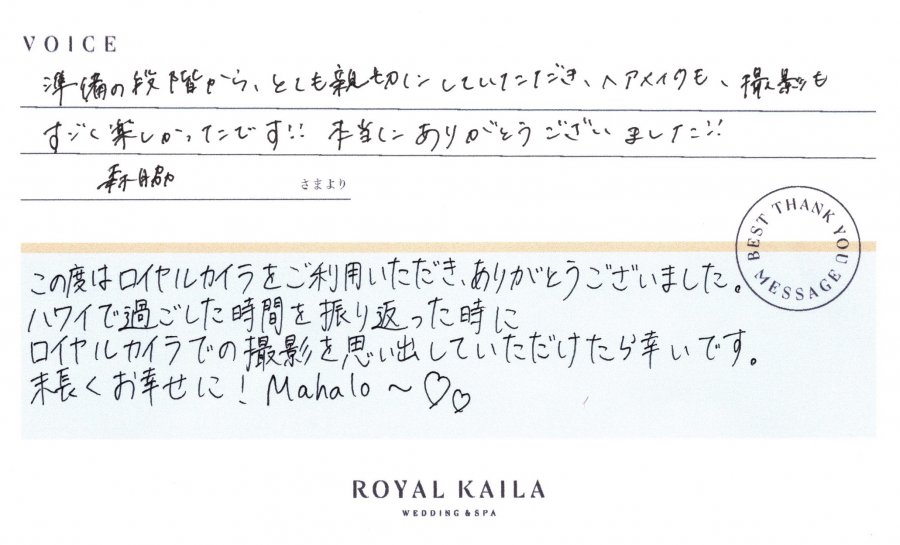 VOICE
準備の段階から、とても親切にしていただき、ヘアメイクも、撮影も
すごく楽しかったです!! 本当にありがとうございました!!
森脇 さまより
BEST THANK YOU MESSAGE
この度はロイヤルカイラをご利用いただき、ありがとうございました。
ハワイで過ごした時間を振り返った時に
ロイヤルカイラでの撮影を思い出していただけたら幸いです。
末長くお幸せに! Mahalo~♡♡
ROYAL KAILA
WEDDING & SPA